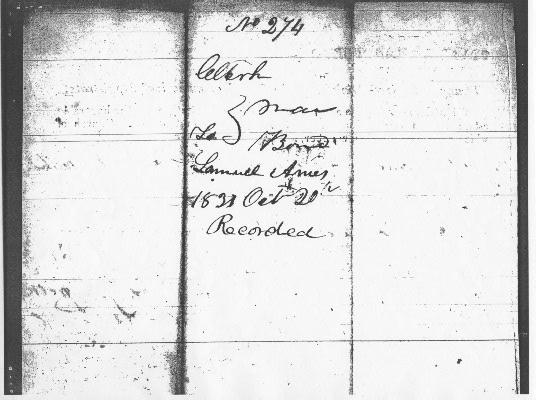 No 274
Clerk
} Mar
To } Bond
Samuel Ames
1831 Oct 20th
Recorded